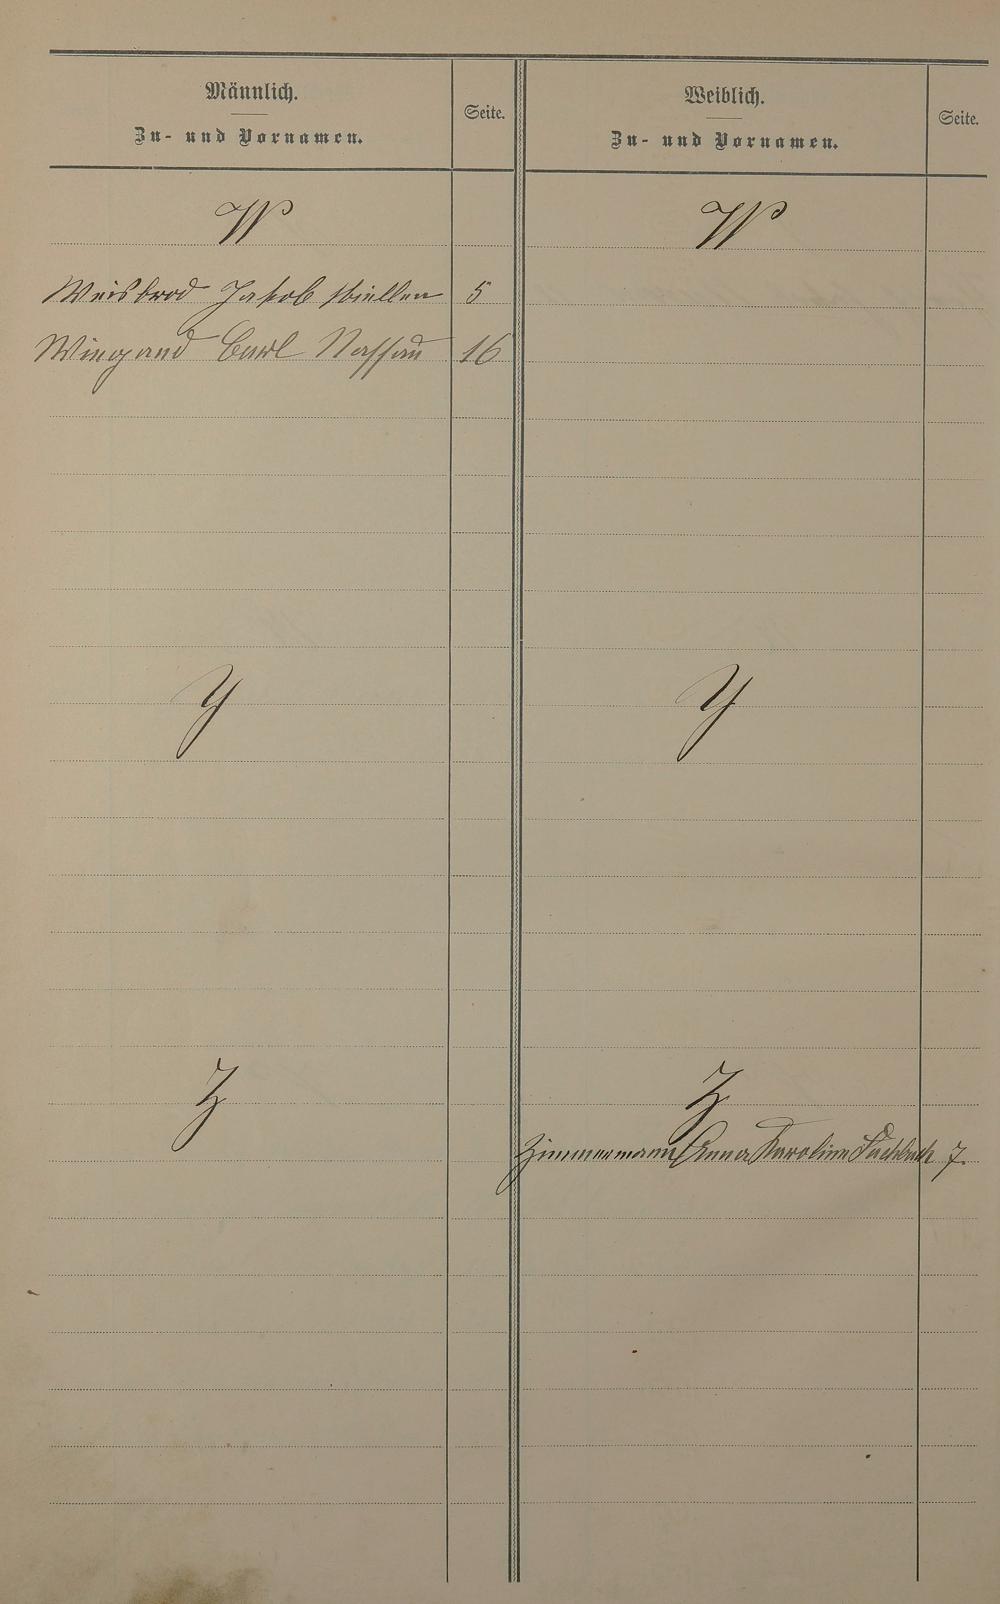 Männlich.
Zu- und Vornamen.
Seite.
Weiblich.
Zu- und Vornamen.
Seite.
W
W
Weisbrod Jakob Miellen 5
Wiegand Carl Nassau 16
Y
Y
Z
Z
Zimmermann Anna Karoline Fachbach 7.